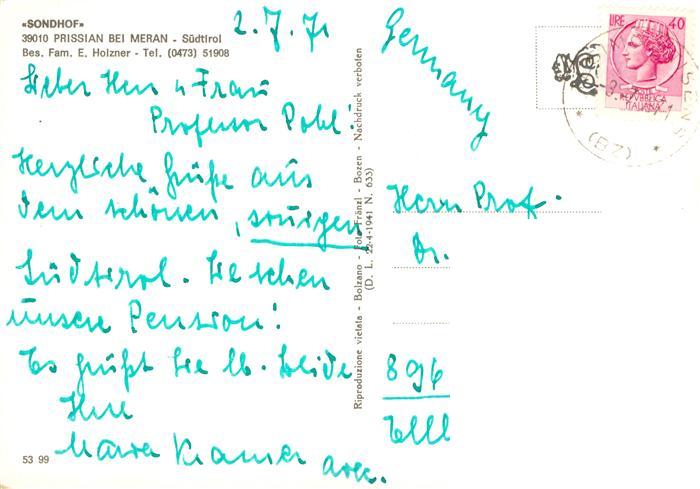 «SONDHOF»
39010 PRISSIAN BEI MERAN - Südtirol
Bes. Fam. E. Holzner - Tel. (0473) 51908
2.7.71
Lieber Herr u Frau
Professor Pohl!
Herzliche Grüße aus
dem schönen, sonnigen
Südtirol. Sie sehen
unsere Pension!
Es grüßt Sie lb. beide
Ihre
Maria Kramer
53 99
Riproduzione vietata - Bolzano - Foto Fränzl - Bozen - Nachdruck verboten
(D. L. 22-4-1941 N. 633)
Germany
LIRE 40
REPVBBLICA
ITALIANA
(BZ)
Herrn Prof.
Dr.
896